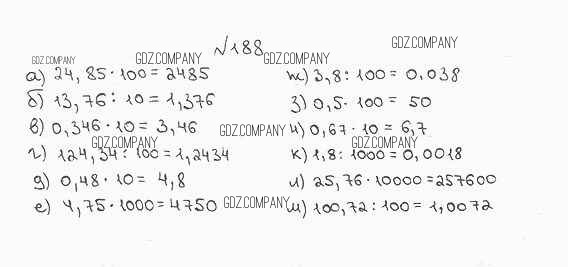 №188
GDZ.COMPANY
GDZ.COMPANY GDZ.COMPANY GDZ.COMPANY
а) 24,85 · 100 = 2485
б) 13,76 : 10 = 1,376
в) 0,346 · 10 = 3,46
GDZ.COMPANY
GDZ.COMPANY
г) 124,34 : 100 = 1,2434
д) 0,48 · 10 = 4,8
е) 4,75 · 1000 = 4750
GDZ.COMPANY
ж) 3,8 : 100 = 0,038
з) 0,5 · 100 = 50
и) 0,67 · 10 = 6,7
GDZ.COMPANY
к) 1,8 : 1000 = 0,0018
л) 25,76 · 10000 = 257600
м) 100,72 : 100 = 1,0072